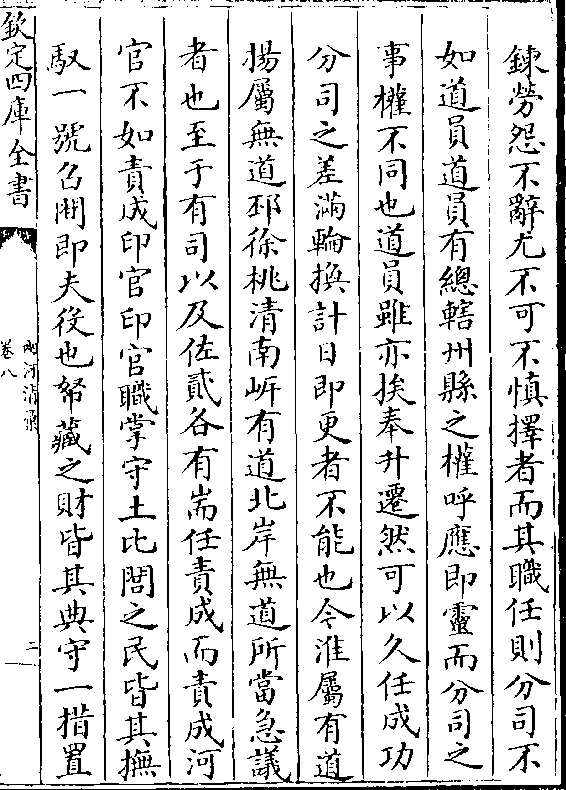 錬勞怨不辭尤不可不慎擇者而其職任則分司不
如道員道員有總轄州縣之權呼應即靈而分司之
事權不同也道員雖亦挨奉升遷然可以久任成功
分司之差滿輪換計日即更者不能也今淮屬有道
揚屬無道邳徐桃清南岍有道北岸無道所當急議
者也至于有司以及佐貳各有耑任責成而責成河
官不如責成印官印官職掌守土比閭之民皆其撫
馭一號召閘即夫役也帑藏之財皆其典守一措置
欽定四庫全書
兩河清彚
卷八
二